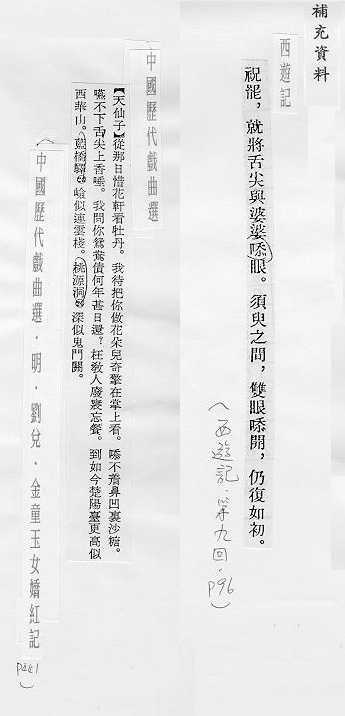 補充資料
西遊記
祝罷，就將舌尖與婆婆㖭眼。須臾之間，雙眼㖭開，仍復如初。
（西遊記．第九回．P96）
中國歷代戲曲選
【天仙子】從那日惜花軒看牡丹。我待把你做花朵兒奇擎在掌上看。㖭不着鼻凹裏沙糖。
嚥不下舌尖上香唾。我問你鴛鴦債何年甚日還？枉敎人廢寢忘餐。到如今楚陽臺更高似
西華山。藍橋驛嶮似連雲棧。桃源洞深似鬼門關。
（中國歷代戲曲選．明．劉兌．金童玉女嬌紅記
P441）